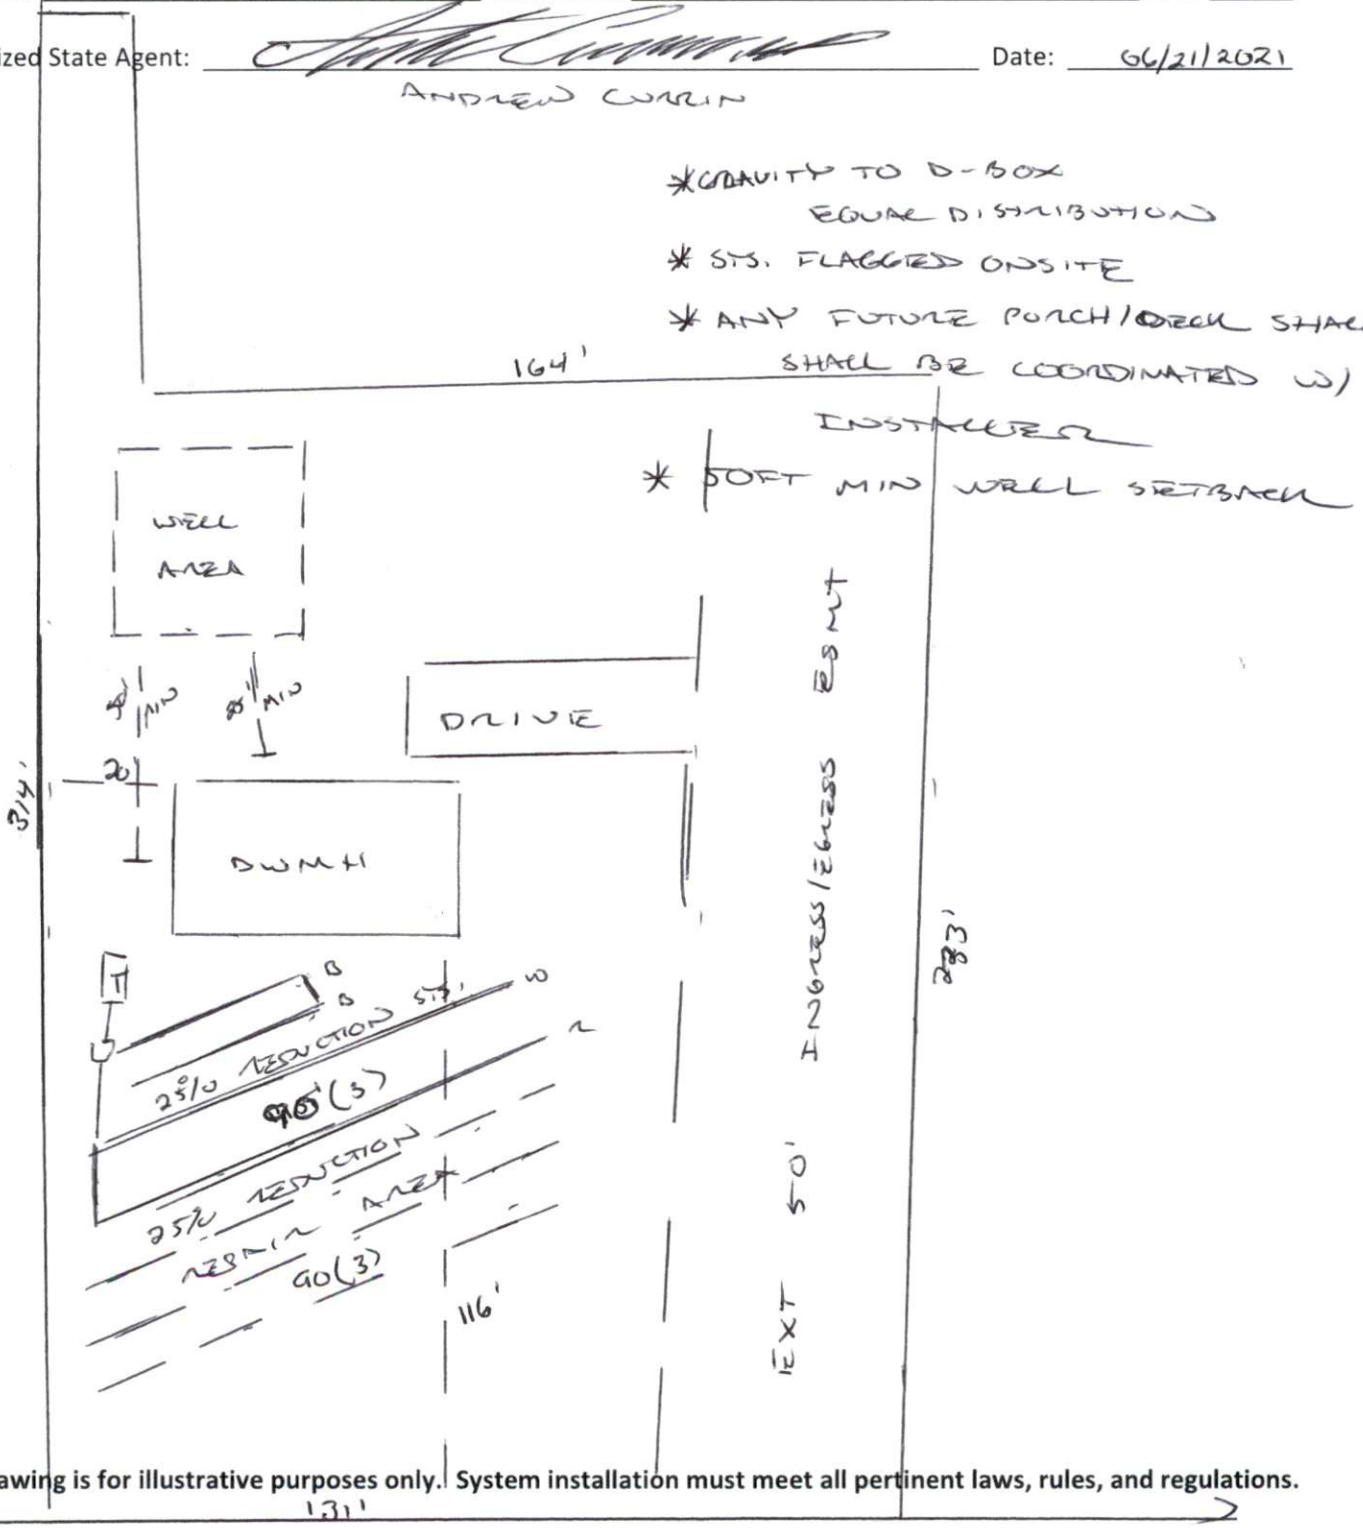 ized State Agent: Date: 06/21/2021
ANDREW CURRIN
*GRAVITY TO D-BOX
EQUAL DISTRIBUTION
* SYS. FLAGGED ONSITE
* ANY FUTURE PORCH/DECK SHAL
SHALL BE COORDINATED W/
INSTALLER
* 50FT MIN WELL SETBACK
164'
WELL
AREA
50' MIN
25' MIN
DRIVE
20'
314'
DWMH
INGRESS/EGRESS ESMT
EXT 50'
T
B
B
W
25% REDUCTION SYS.
90'(3)
R
25% REDUCTION
REPAIR AREA
90(3)
116'
awing is for illustrative purposes only. System installation must meet all pertinent laws, rules, and regulations.
131'